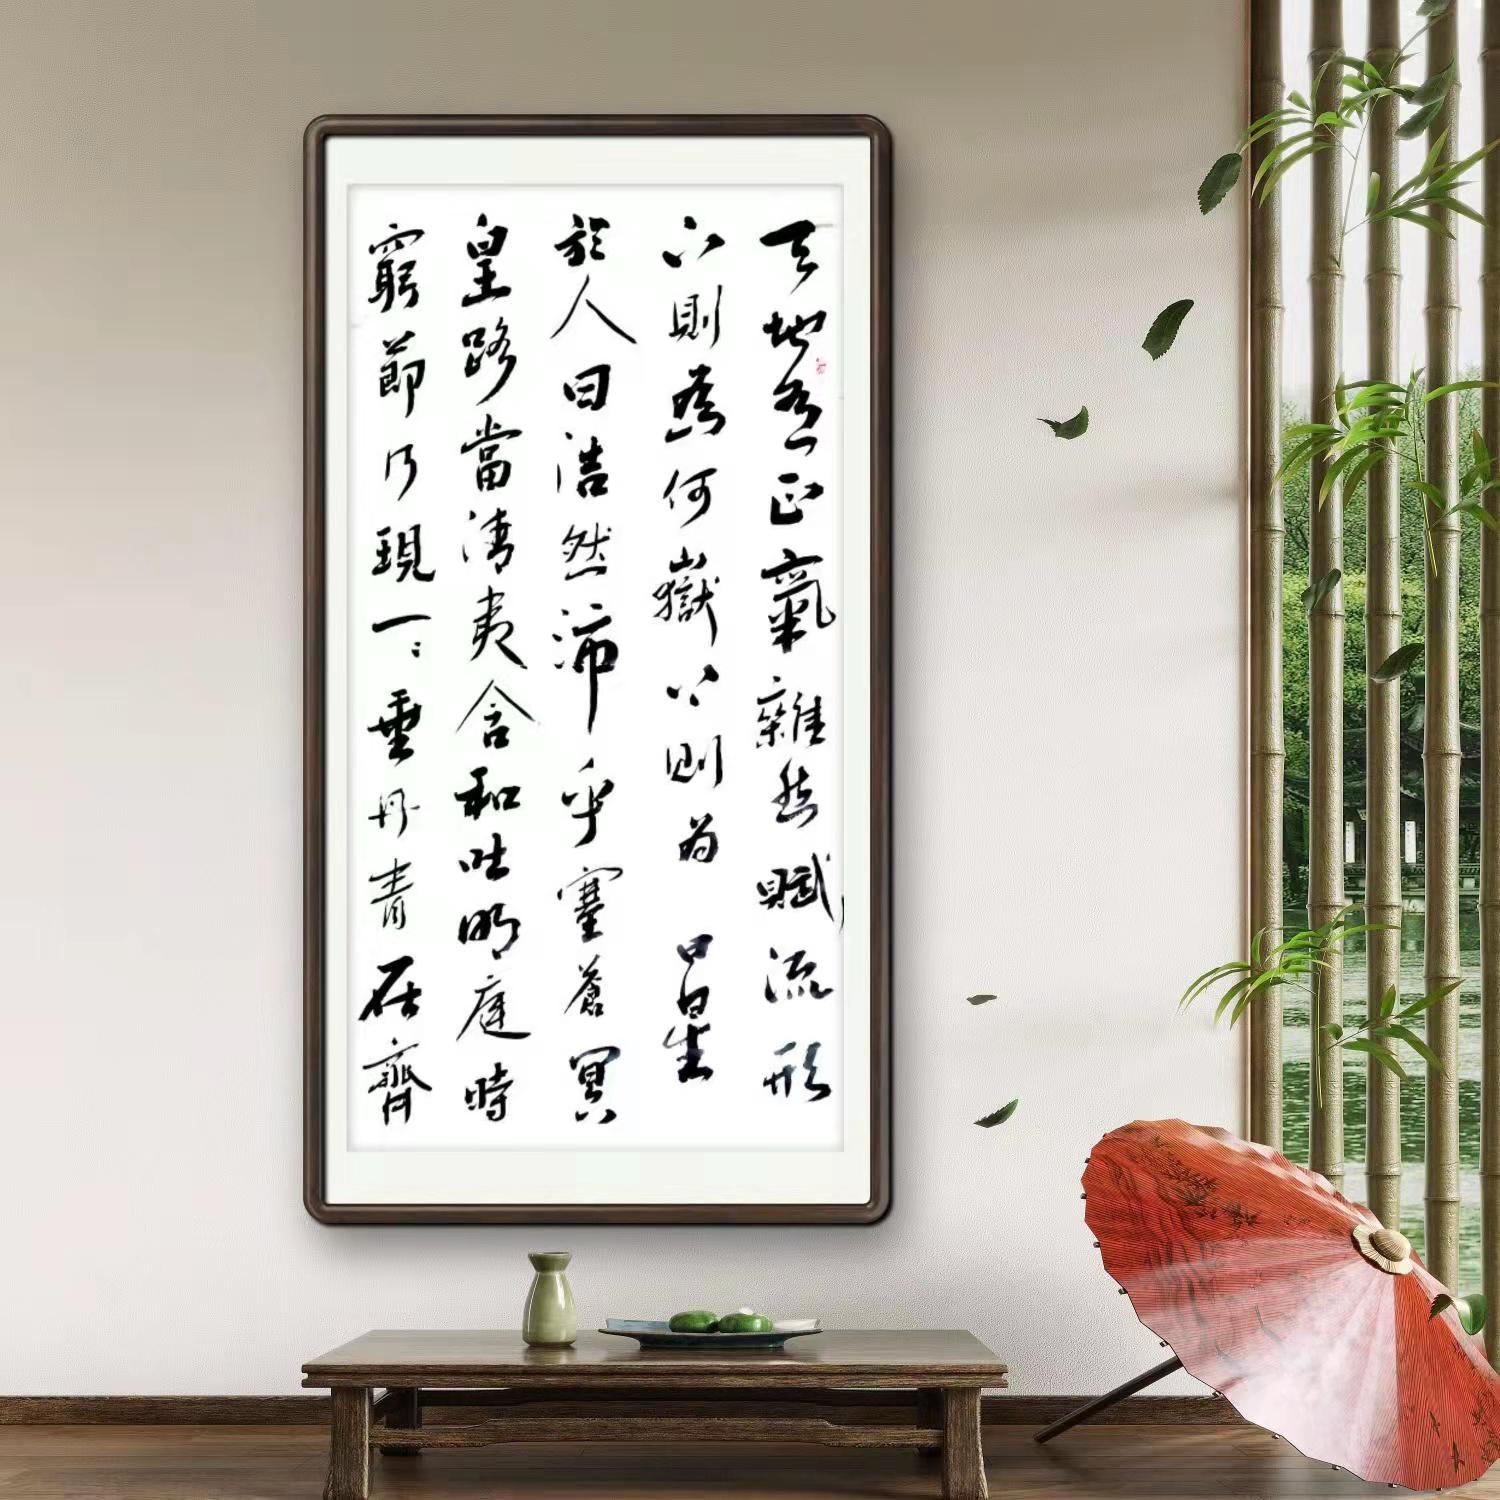 天地有正氣雜然賦流形
下則為何嶽上則為日星
於人曰浩然沛乎塞蒼冥
皇路當清夷含和吐明庭時
窮節乃現一〻垂丹青在齊